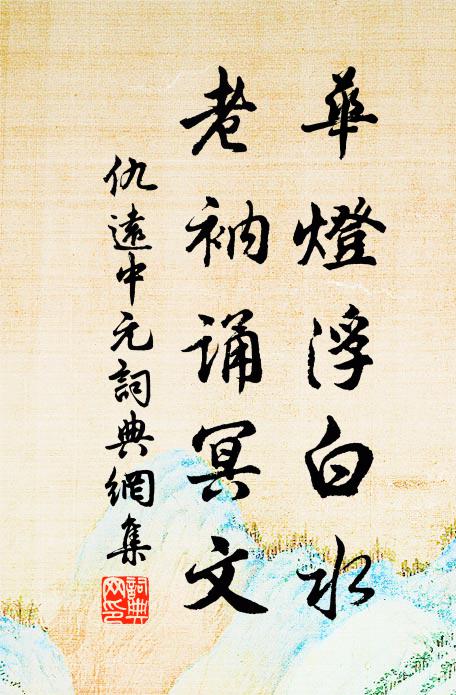 華燈浮白水
老衲誦冥文
仇遠中元詞典網集
詞典網印